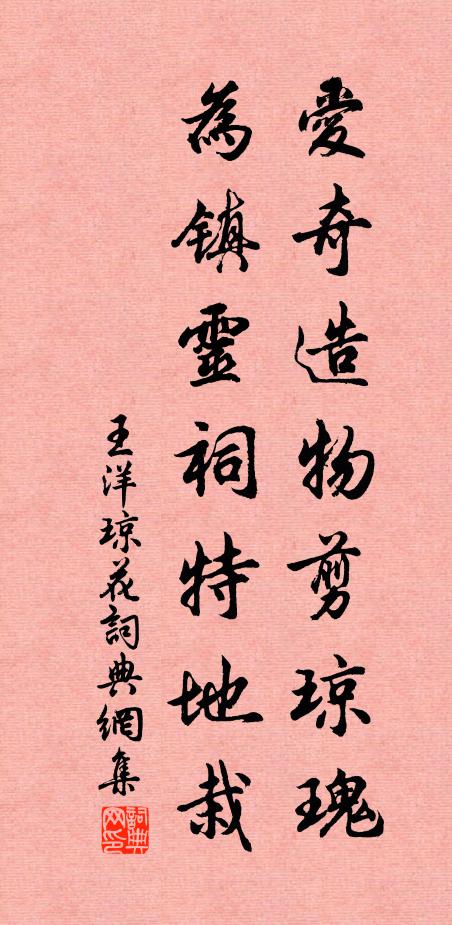 愛奇造物剪琼瑰
為鎮靈祠特地栽
王洋琼花詞典網集
詞典网印